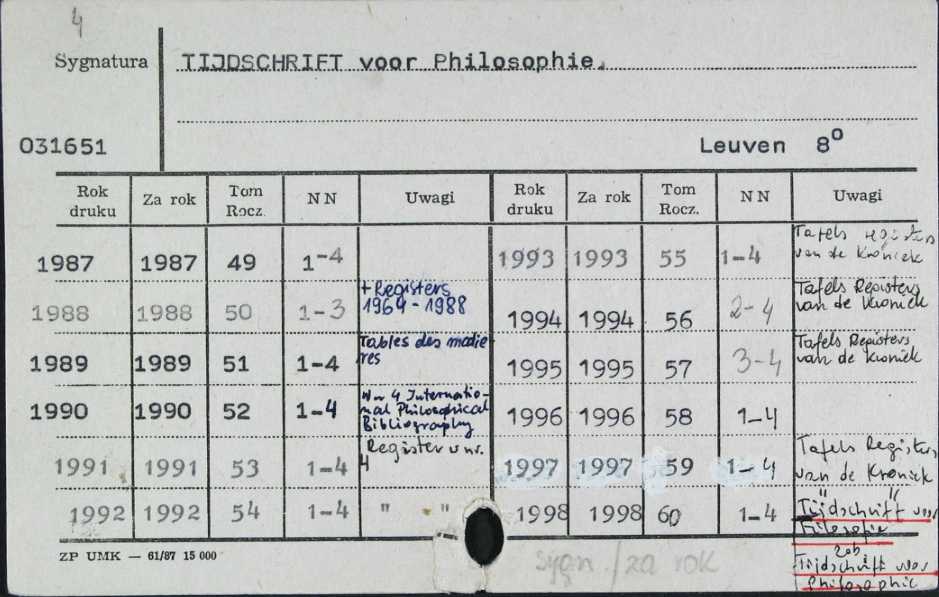 4
Sygnatura TIJDSCHRIFT voor Philosophie.
031651 Leuven 8°
Rok druku Za rok Tom Rocz. NN Uwagi Rok druku Za rok Tom Rocz. NN Uwagi
1987 1987 49 1-4 1993 1993 55 1-4 Tafels registers van de Kroniek
1988 1988 50 1-3 + Registers 1964-1988 1994 1994 56 2-4 Tafels Registers van de Kroniek
1989 1989 51 1-4 Tables des matieres 1995 1995 57 3-4 Tafels Registers van de Kroniek
1990 1990 52 1-4 W nr 4 International Philosophical Bibliography 1996 1996 58 1-4
1991 1991 53 1-4 Register w nr. 4 1997 1997 59 1-4 Tafels Registers van de Kroniek
1992 1992 54 1-4 " " 1998 1998 60 1-4 " "
Tijdschrift voor
Filosofie
zob.
Tijdschrift voor
Philosophie
ZP UMK — 61/87 15 000
sygn. / za rok